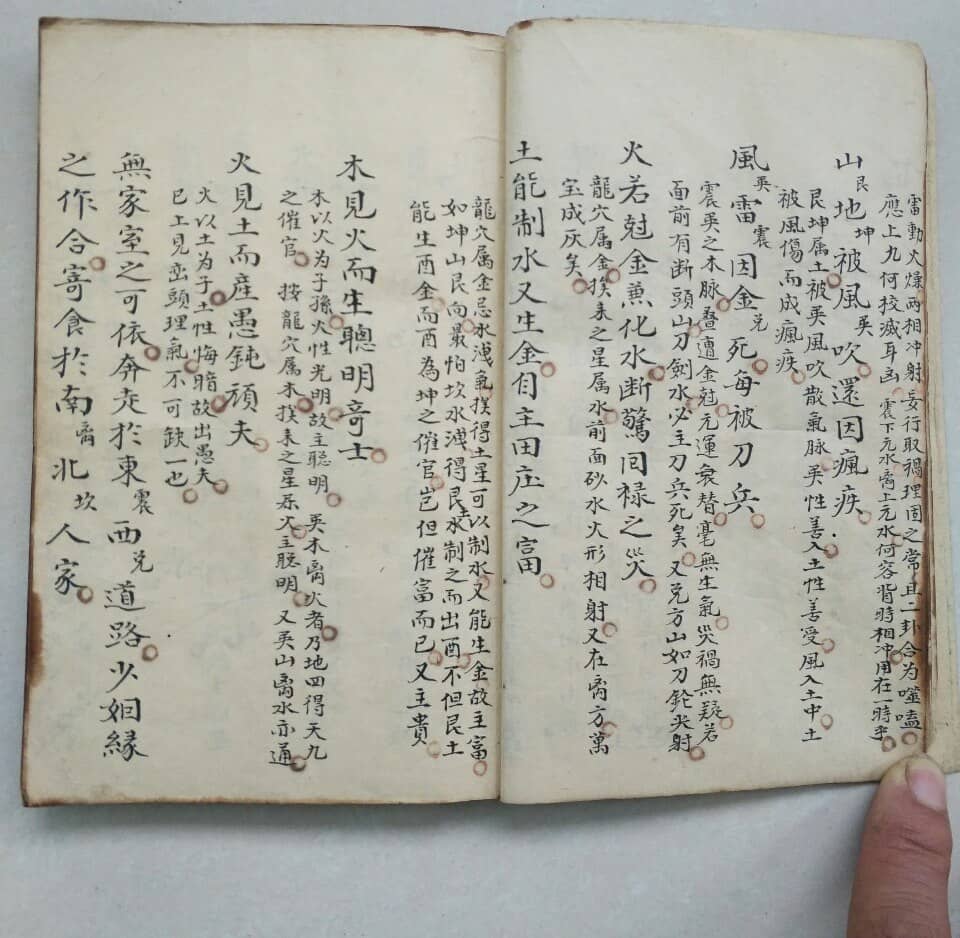 雷動火燥两相冲射妄行取禍理固之常且二卦合为噬嗑
應上九何校滅耳凶震下元水离上元水何容背時相冲用在一時乎
山艮地坤被風巽吹還因瘋疾
艮坤属土被巽風吹散氣脉巽性善入土性善受風入土中土
被風傷而成瘋疾
風巽雷震因金兑死每被刀兵
震巽之木脉叠遭金尅元運衰替毫無生氣災禍無疑若
面前有断頭山刀劍水必主刀兵死矣又兑方山如刀鎗尖射
火若尅金兼化水断驚囘禄之災
龍穴属金挨来之星属水前面砂水火形相射又在离方萬
宝成灰矣
土能制水又生金自主田庄之富
龍穴属金忌水洩氣挨得土星可以制水又能生金故主富
如坤山艮向最怕坎水洩得艮土制之而出酉不但艮土
能生酉金而酉為坤之催官岂但催富而已又主貴
木見火而生聰明奇士
木以火为子孫火性光明故主聪明巽木离火者乃地四得天九
之催官按龍穴属木挨来之星系火主聪明又巽山离水亦通
火見土而産愚鈍頑夫
火以土为子土性悔暗故出愚夫
已上見峦頭理氣不可缺一也
無家室之可依奔走於東震西兑道路少姻緣
之作合寄食於南离北坎人家